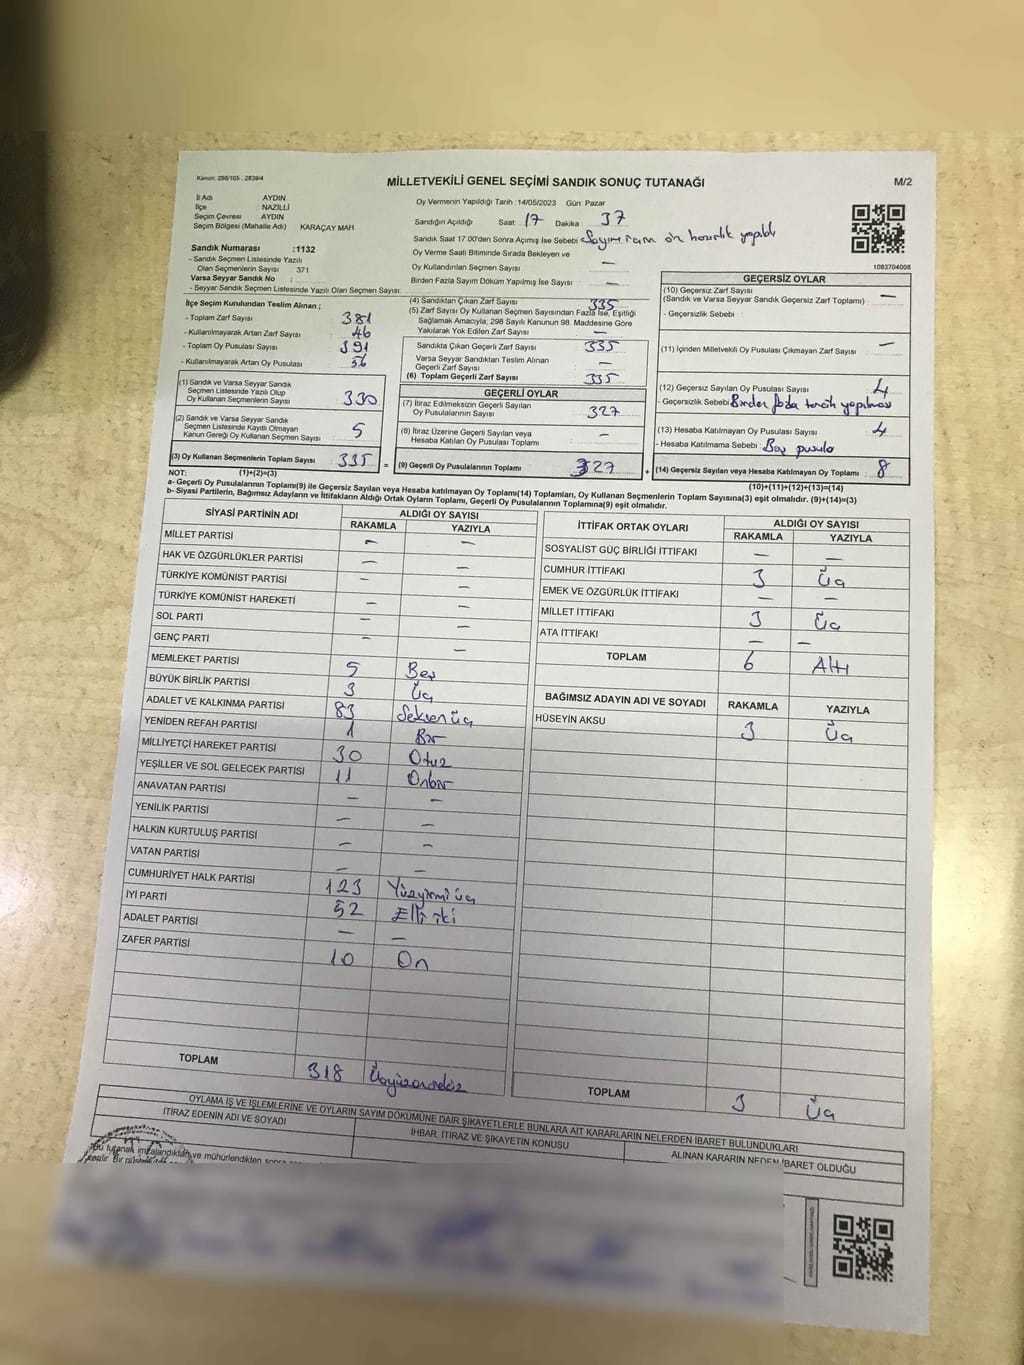 Kanun: 298/105 , 2839/4
MİLLETVEKİLİ GENEL SEÇİMİ SANDIK SONUÇ TUTANAĞI
M/2
İl Adı AYDIN
İlçe NAZİLLİ
Seçim Çevresi AYDIN
Seçim Bölgesi (Mahalle Adı) KARAÇAY MAH.
Oy Vermenin Yapıldığı Tarih :14/05/2023 Gün: Pazar
Sandığın Açıldığı Saat: 17 Dakika : 37
Sandık Saat 17:00'den Sonra Açımış İse Sebebi: Sayım ön hazırlık yapıldı
Oy Verme Saati Bitiminde Sırada Bekleyen ve
Oy Kullandırılan Seçmen Sayısı : —
Birden Fazla Sayım Döküm Yapılmış İse Sayısı : —
1083704008
Sandık Numarası :1132
- Sandık Seçmen Listesinde Yazılı
Olan Seçmenlerin Sayısı 371
Varsa Seyyar Sandık No :
- Seyyar Sandık Seçmen Listesinde Yazılı Olan Seçmen Sayısı:
İlçe Seçim Kurulundan Teslim Alınan ;
- Toplam Zarf Sayısı : 381
- Kullanılmayarak Artan Zarf Sayısı : 46
- Toplam Oy Pusulası Sayısı : 391
- Kullanılmayarak Artan Oy Pusulası : 56
(1) Sandık ve Varsa Seyyar Sandık
Seçmen Listesinde Yazılı Olup
Oy Kullanan Seçmenlerin Sayısı : 330
(2) Sandık ve Varsa Seyyar Sandık
Seçmen Listesinde Kayıtlı Olmayan
Kanun Gereği Oy Kullanan Seçmen Sayısı : 5
(3) Oy Kullanan Seçmenlerin Toplam Sayısı : 335 =
(1)+(2)=(3)
(4) Sandıktan Çıkan Zarf Sayısı : 335
(5) Zarf Sayısı Oy Kullanan Seçmen Sayısından Fazla İse, Eşitliği
Sağlamak Amacıyla, 298 Sayılı Kanunun 98. Maddesine Göre
Yakılarak Yok Edilen Zarf Sayısı : —
Sandıkta Çıkan Geçerli Zarf Sayısı : 335
Varsa Seyyar Sandıktan Teslim Alınan
Geçerli Zarf Sayısı : —
(6) Toplam Geçerli Zarf Sayısı : 335
GEÇERLİ OYLAR
(7) İtiraz Edilmeksizin Geçerli Sayılan
Oy Pusulalarının Sayısı : 327
(8) İtiraz Üzerine Geçerli Sayılan veya
Hesaba Katılan Oy Pusulası Toplamı : —
(9) Geçerli Oy Pusulalarının Toplamı : 327 +
GEÇERSİZ OYLAR
(10) Geçersiz Zarf Sayısı
(Sandık ve Varsa Seyyar Sandık Geçersiz Zarf Toplamı) : —
- Geçersizlik Sebebi :
(11) İçinden Milletvekili Oy Pusulası Çıkmayan Zarf Sayısı : —
(12) Geçersiz Sayılan Oy Pusulası Sayısı : 4
- Geçersizlik Sebebi: Birden fazla tercih yapılması
(13) Hesaba Katılmayan Oy Pusulası Sayısı : 4
- Hesaba Katılmama Sebebi : Boş pusula
(14) Geçersiz Sayılan veya Hesaba Katılmayan Oy Toplamı : 8
(10)+(11)+(12)+(13)=(14)
NOT:
a- Geçerli Oy Pusulalarının Toplamı(9) ile Geçersiz Sayılan veya Hesaba katılmayan Oy Toplamı(14) Toplamları, Oy Kullanan Seçmenlerin Toplam Sayısına(3) eşit olmalıdır. (9)+(14)=(3)
b- Siyasi Partilerin, Bağımsız Adayların ve İttifakların Aldığı Ortak Oyların Toplamı, Geçerli Oy Pusulalarının Toplamına(9) eşit olmalıdır.
SİYASİ PARTİNİN ADI ALDIĞI OY SAYISI
RAKAMLA YAZIYLA
MİLLET PARTİSİ — —
HAK VE ÖZGÜRLÜKLER PARTİSİ — —
TÜRKİYE KOMÜNİST PARTİSİ — —
TÜRKİYE KOMÜNİST HAREKETİ — —
SOL PARTİ — —
GENÇ PARTİ — —
MEMLEKET PARTİSİ 5 Beş
BÜYÜK BİRLİK PARTİSİ 3 Üç
ADALET VE KALKINMA PARTİSİ 83 Seksenüç
YENİDEN REFAH PARTİSİ 1 Bir
MİLLİYETÇİ HAREKET PARTİSİ 30 Otuz
YEŞİLLER VE SOL GELECEK PARTİSİ 11 Onbir
ANAVATAN PARTİSİ — —
YENİLİK PARTİSİ — —
HALKIN KURTULUŞ PARTİSİ — —
VATAN PARTİSİ — —
CUMHURİYET HALK PARTİSİ 123 Yüzyirmiüç
İYİ PARTİ 52 Elli iki
ADALET PARTİSİ — —
ZAFER PARTİSİ 10 On
TOPLAM 318 Üçyüzonsekiz
İTTİFAK ORTAK OYLARI ALDIĞI OY SAYISI
RAKAMLA YAZIYLA
SOSYALİST GÜÇ BİRLİĞİ İTTİFAKI — —
CUMHUR İTTİFAKI 3 Üç
EMEK VE ÖZGÜRLÜK İTTİFAKI — —
MİLLET İTTİFAKI 3 Üç
ATA İTTİFAKI — —
TOPLAM 6 Altı
BAĞIMSIZ ADAYIN ADI VE SOYADI RAKAMLA YAZIYLA
HÜSEYİN AKSU 3 Üç
TOPLAM 3 Üç
OYLAMA İŞ VE İŞLEMLERİNE VE OYLARIN SAYIM DÖKÜMÜNE DAİR ŞİKAYETLERLE BUNLARA AİT KARARLARIN NELERDEN İBARET BULUNDUKLARI
İTİRAZ EDENİN ADI VE SOYADI
İHBAR, İTİRAZ VE ŞİKAYETİN KONUSU
ALINAN KARARIN NEDEN İBARET OLDUĞU
Bu tutanak imzalandıktan ve mühürlendikten sonra